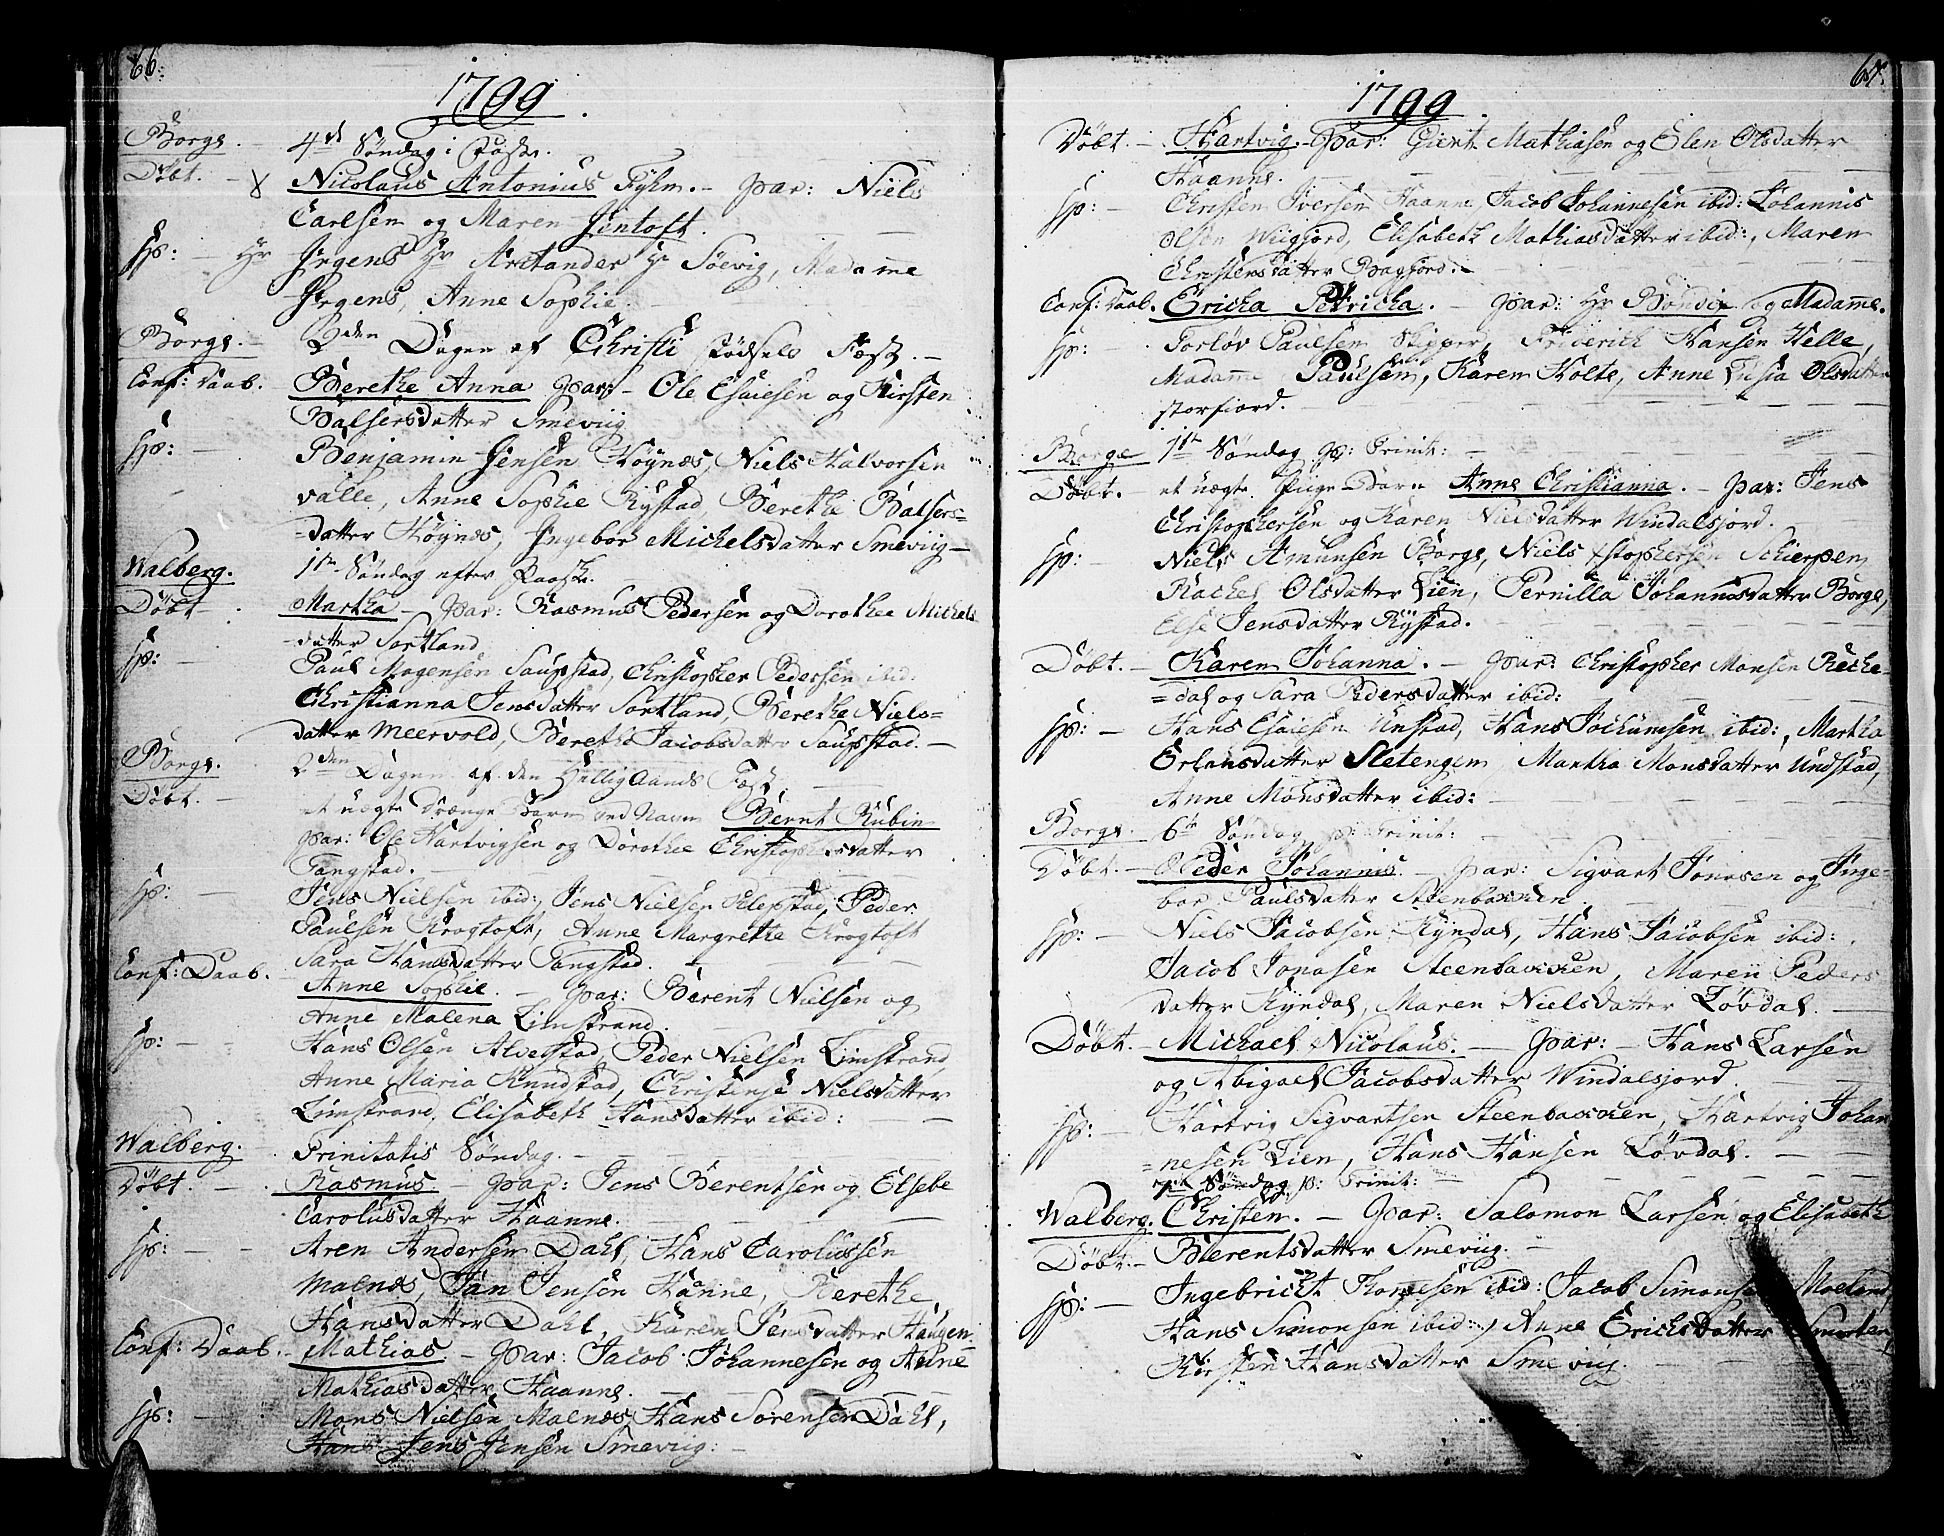 66.
1799.
Borge. - 4de Søndag i Faste.
Døbt. - Nicolaus Antonius Fyhm. - Par: Niels
Carlsen og Maren Jentoft.
Sp: - Hr Jrgens Hr Arctander Hr Søevig, Madame
Jrgens, Anne Sophie.
Borge. - 2den Dagen af Christi Fødsels Fæst. -
Conf: Daab. - Berethe Anna Par: - Ole Esaiesen og Kirsten
Balsersdatter Smeviig
Sp: Benjamin Jensen Høynæs, Niels Halvorsen
valle, Anne Sophie Rystad, Berethe Balsers-
-datter Høynæs, Ingebor Michelsdatter Smeviig -
Walberg. 1te Søndag efter Paaske.
Døbt. Martha - Par: Rasmus Pedersen og Dorothee Michels
-datter Sortland
Sp: - Paul Mogensen Saupstad, Christopher Pedersen ibid:
Christianna Jensdatter Sortland, Berethe Niels-
datter Meervold, Berethe Jacobsdatter Saupstad. -
Borge. 2den Dagen af den Hellig Aands Fæst. -
Døbt. - et uægte Drænge Barn ved Navn Bernt Rubin
Par: Ole Hartvigsen og Dorothee Christophersdatter
Tangstad. -
Sp: - Jens Nielsen ibid:, Jens Nielsen Klepstad, Peder
Paulsen Krogtoft, Anne Margrethe Krogtoft
Sara Hansdatter Tangstad. -
Conf: Daab. Anne Sophie. - Par: Berent Nielsen og
Anne Malena Limstrand.
Sp: - Hans Olsen Alvetstad, Peder Nielsen Limstrand,
Anne Maria Knudstad, Christense Nielsdatter
Limstrand, Elisabeth Hansdatter ibid: -
Walberg. Trinitatis Søndag. -
Døbt. - Rasmus - Par: Jens Berentsen og Elsebe
Carolusdatter Haanne.
Sp: - Aren Andersen Dahl, Hans Carolussen
Malnæs, Jan Jensen Hanne, Berethe
Hansdatter Dahl, Karen Jensdatter Haugen
Conf: Daab. - Mathias - Par: Jacob Johannesen og Anne
Mathiasdatter Haanne.
Sp: - Mons Nielsen Malnæs, Hans Sørensen Dahl,
Hans Jens Jensen Smeviig: -
67.
1799.
Døbt. - Hartvig. - Par: Giert Mathiasen og Elen Olsdatter
Haanne.
Sp: - Christen Iversen Haanne, Jacob Johannesen ibid: Johannis
Olsen Wiigfjord, Elisabeth Mathiasdatter ibid:, Maren
Christensdatter Bagfjord. -
Conf: Daab. Ericka Petricka. - Par: Hr Bønder og Madamme.
Sp: Torløv Paulsen Skipper, Friderich Hansen Helle,
Madamme Paulsen, Karen Holte, Anne Olsdatter
storfiord. -
Borge 1te Søndag p: Trinit: -
Døbt. - et uægte Piige Barn Anne Christianna. - Par: Jens
Christophersen og Karen Nielsdatter Windalsjord.
Sp: - Niels Amunsen Borge, Niels Xstophersen Schierpen
Rachel Olsdatter Lien, Pernilla Johannisdatter Borge,
Else Jensdatter Rystad.
Døbt. - Karen Johanna. - Par: Christopher Monsen Reche-
=dal og Sara Pedersdatter ibid:
Sp: - Hans Esaiesen Unstad, Hans Jochumsen ibid:, Martha
Erlansdatter Sletengen, Martha Monsdatter Undstad,
Anne Monsdatter ibid: -
Borge. 6te Søndag p: Trinit: -
Døbt. - Peder Johannis. - Par: Sigvart Jonasen og Inge-
bor Paulsdatter Steenbakken
Sp: - Niels Jacobsen Kyndal, Hans Jacobsen ibid:,
Jacob Jonasen Steenbakken, Maren Peders
datter Kyndal, Maren Nielsdatter Løvdal. -
Døbt. - Michael Nicolaus. - Par: - Hans Larsen
og Abigael Jacobsdatter Windalsjord.
Sp: - Hartvig Sigvartsen Steenbakken, Hartvig Johan
=nesen Lien, Hans Hansen Løvdal. -
7de Søndag p: Trinit: -
Walberg. Christen. - Par: Salomon Larsen og Elisabeth
Døbt. - Berentsdatter Smeviig. -
Sp: - Ingebricht Thomesen ibid: Jacob Simonsen Moeland,
Hans Simonsen ibid:, Anne Erichsdatter Smorten,
Kirsten Hansdatter Smeviig. -